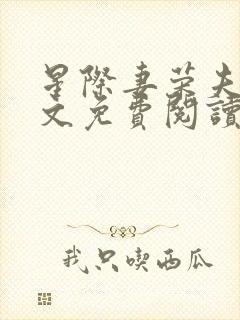 星際妻荣夫
文免費閱讀
我只喫西瓜